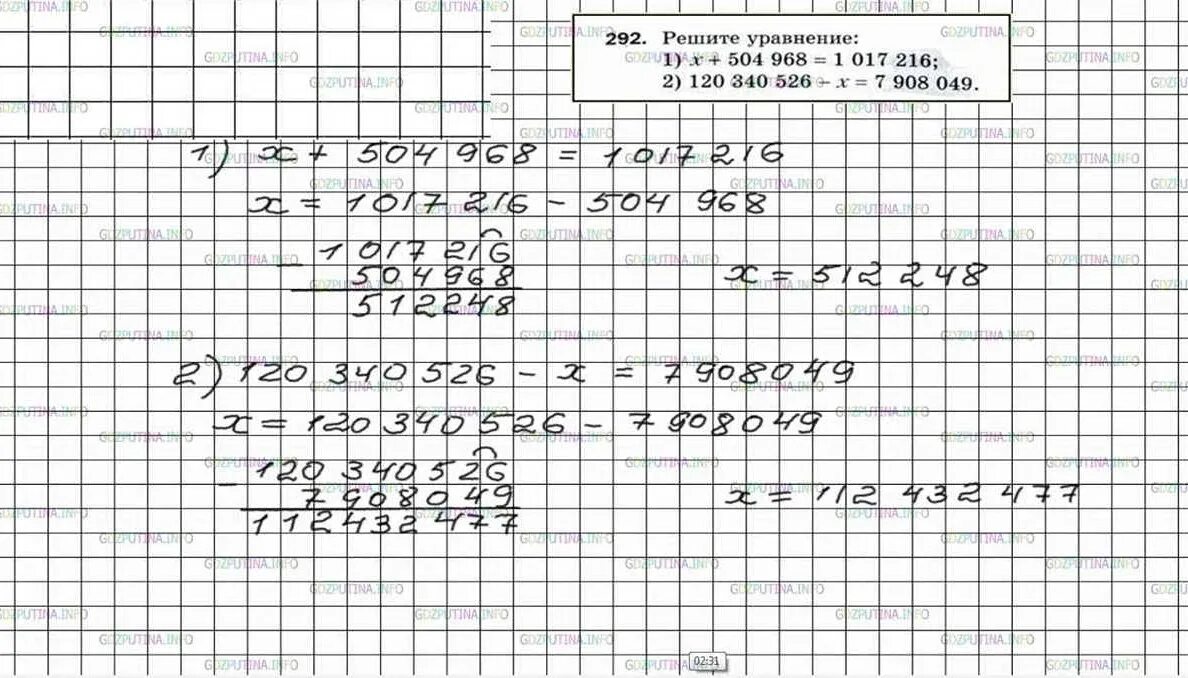 292. Решите уравнение:
1) x + 504 968 = 1 017 216;
2) 120 340 526 − x = 7 908 049.
1) x + 504 968 = 1 017 216
x = 1 017 216 − 504 968
− 1 017 216
504 968
512 248
x = 512 248
2) 120 340 526 − x = 7 908 049
x = 120 340 526 − 7 908 049
− 120 340 526
7 908 049
112 432 477
x = 112 432 477
02:31
GDZPUTINA.INFO